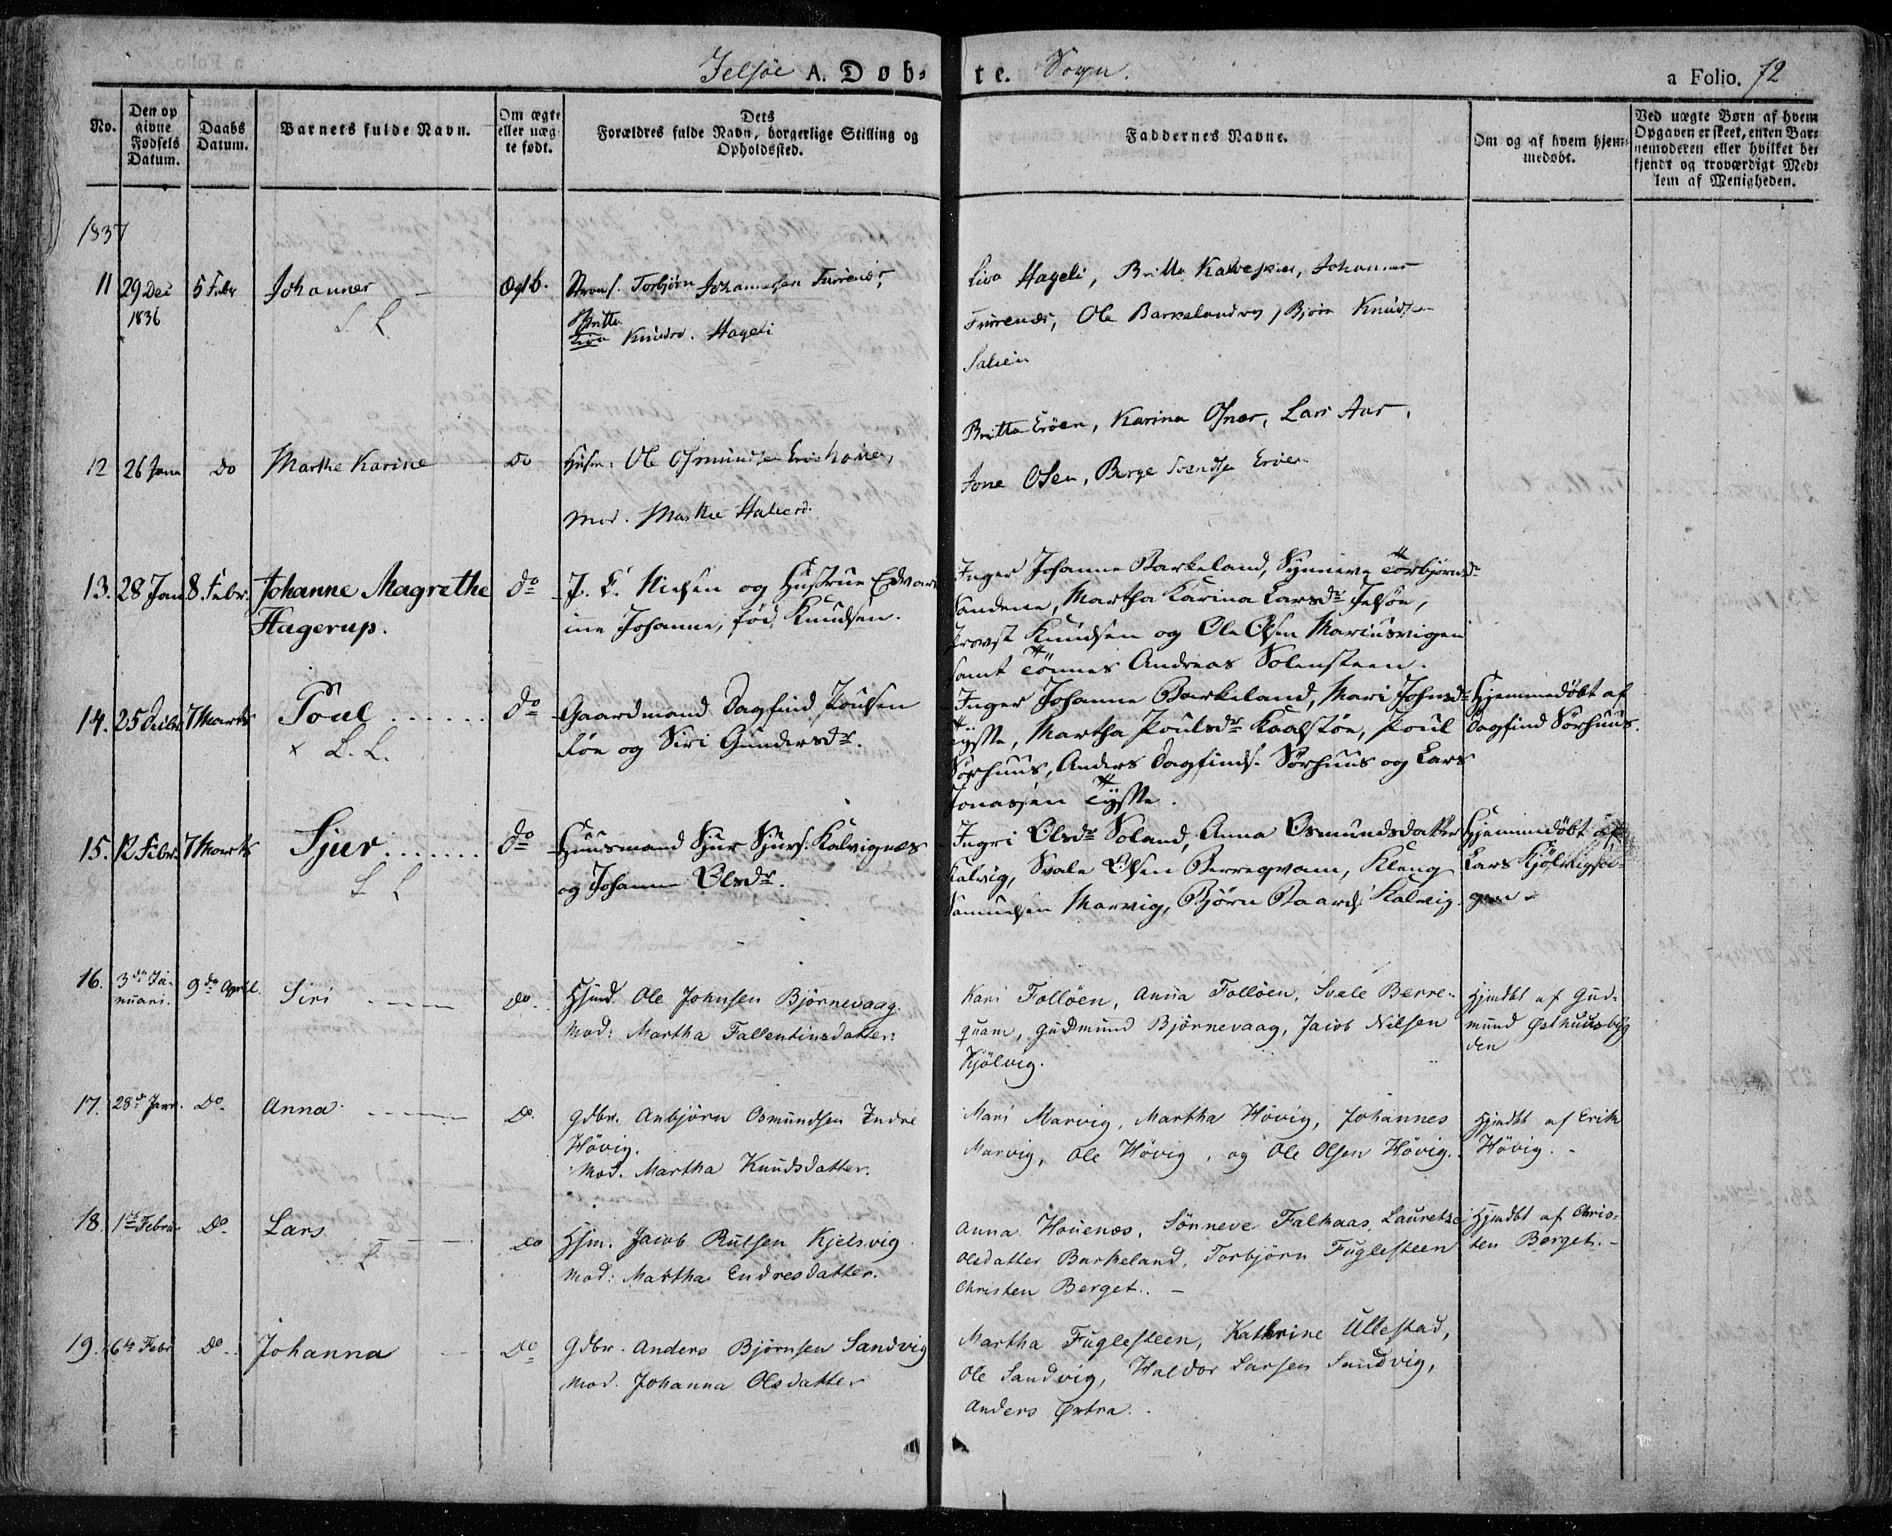 Jelsöe A. Döb- te. Sogn. a Folio. 72
No. Den op givne Fødsels Datum. Daabs Datum. Barnets fulde Navn. Om ægte eller uæg- te født. Dets Forældres fulde Navn, borgerlige Stilling og Opholdssted. Faddernes Navne. Om og af hvem hjem- medøbt. Ved uægte Børn af hvem Opgaven er skeet, enten Bar- nemoderen eller hvilket be- kjendt og troværdigt Med- lem af Menigheden.
1837
11 29 Dec 1836 5 Febr Johannes
Torbjørn Johannesen Furenæs,
Britta Knudsd. Hageli
Liva Hageli, Britta Johannes
Furenæs, Ole Bjørn Knudsen
12 26 Janr do Marthe Karine do Husm: Ole Osmundsen
Mod. Marthe
Britta Eröen, Karina Osnes, Lars Aas,
Jone Osen, Berge Svendsen Eröen
13. 28 Jan 8. Febr. Johanne Magrethe Hagerup. do J. F. Nielsen og Hustrue Edvar-
ine Johanne, fød Knudsen.
Inger Johanne Barkeland, Synneve Torbjørnsdr
Sandene, Martha Karina Larsdr Jelsöe,
Provst Knudsen og Ole Olsen Mariusvigen
samt Tönnes Andreas Solensteen.
14. 25 Debr. 7 Marts Poul . . . . . . do Gaardmand Dagfind Poulsen
Föe og Siri Gundersdr.
x L. L.
Inger Johanne Barkeland, Mari Johnsdr
Tysse, Martha Poulsdr Kaalstöe, Poul
Sörhuus, Anders Dagfinds. Sörhuus og Lars
Jonassen Tysse.
Hjemmedöbt af
Dagfind Sörhuus.
15. 12 Febr. 7 Marts Sjur . . . . . . . do Huusmand Sjur Sjurs. Kalvignæs
og Johanne Olsdr.
L L
Ingri Olsdr Soland, Anna Osmundsdatter
Kalvig, Svale Olsen Berreqvam, Kleng
Samuelsen Marvig, Björn Baards. Kalvig.
Hjemmedöbt af
Lars Kjölvigs
16. 3de Ja- nuari. 9de April. Siri do. Hsmd. Ole Johnsen Björnevaag.
Mod: Martha Fallentinsdatter.
Kari Follöen, Anna Follöen, Svale Berre-
quam, Gudmund Björnevaag, Jacob Nilsen
Kjölvig.
Hjmdbt af Gud-
mund Østhuusbyg
den
17. 28de Janr. Do. Anna. Do. Gdbr. Anbjörn Osmundsen Indre
Hövig.
Mod. Martha Knudsdatter.
Mari Marvig, Martha Hövig, Johannes
Marvig, Ole Hövig, og Ole Olsen Hövig.
Hjmdbt af Erik
Hövig.
18. 1ste Februar Do. Lars Do Hsm. Jacob Rulsen Kjelsvig
Mod: Martha Endresdatter.
L
Anna Houenæs, Sönneve Falhaas, Lauretze
Olsdatter Barkeland, Torbjörn Fuglesteen
Christen Berget.
Hjmdbt af Chris-
ten Berget.
19. 6te Febr Do. Johanna Do Gdbr. Anders Björnsen Sandvig
Mod. Johanna Olsdatter
Martha Fuglesteen, Kathrine Ullestad,
Ole Sandvig, Haldor Larsen Sandvig,
Anders Østra.